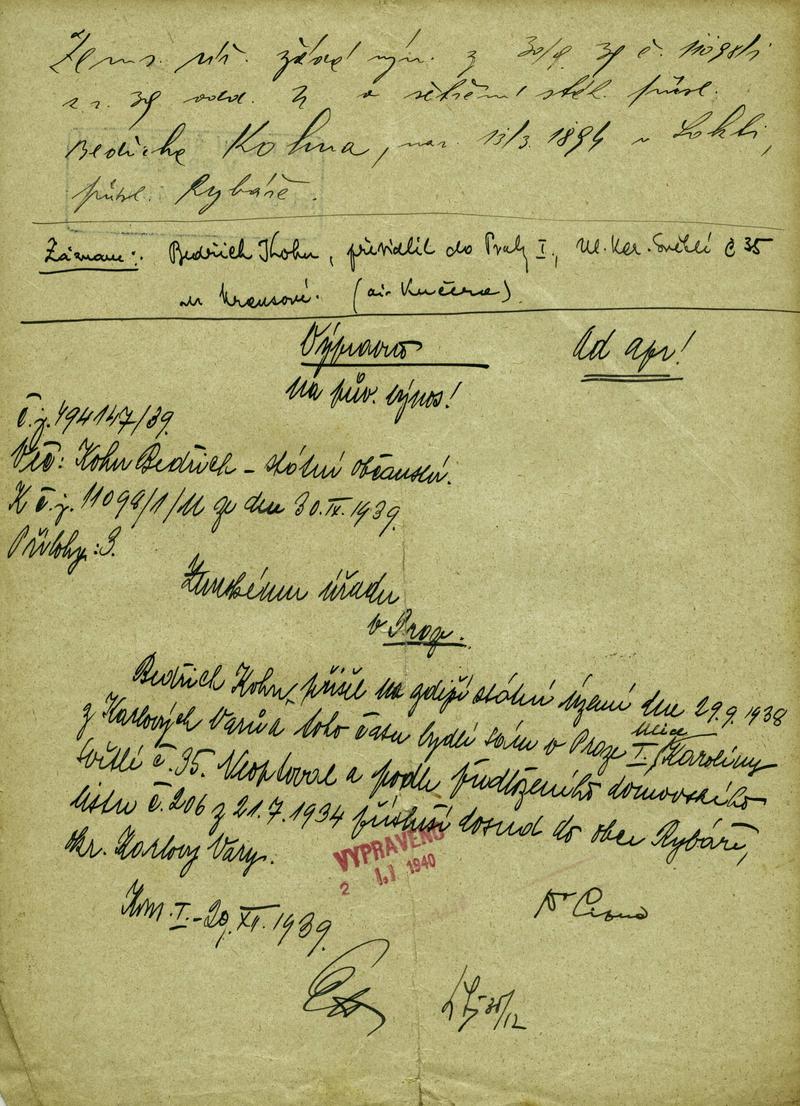 Zems. úř. žádá výn. z 30/9. 39 č. 11098/1
z r. 39 odd. 11 o šetření stát. přísl.
Bedřicha Kohna, nar. 13/3. 1894 v Lokti,
přísl. Rybáře.
Záznam: Bedřich Kohn, přesídlil do Prahy I., Ul. Kar. Světlé č 35
u Krausové. (air Kučera)
Výprava Ad apr!
na pův. výnos!
Č.j. 494147/39.
Věc: Kohn Bedřich – státní občanství.
K č.j. 11098/1/11 ze dne 30.IX.1939.
Přílohy: 3.
Zemskému úřadu
v Praze.
Bedřich Kohn, přišel na zdejší státní území dne 29.9.1938
z Karlových Varů a toho času bydlí sám v Praze I, ulice Karoliny
Světlé č. 35. Neoptoval a podle předloženého domovského
listu č. 206 z 21.7.1934 přísluší dosud do obce Rybáře,
okr. Karlovy Vary.
VYPRAVENO
2 I. 1940
Kom. I. – 29. XII. 1939.
Dr
30/12